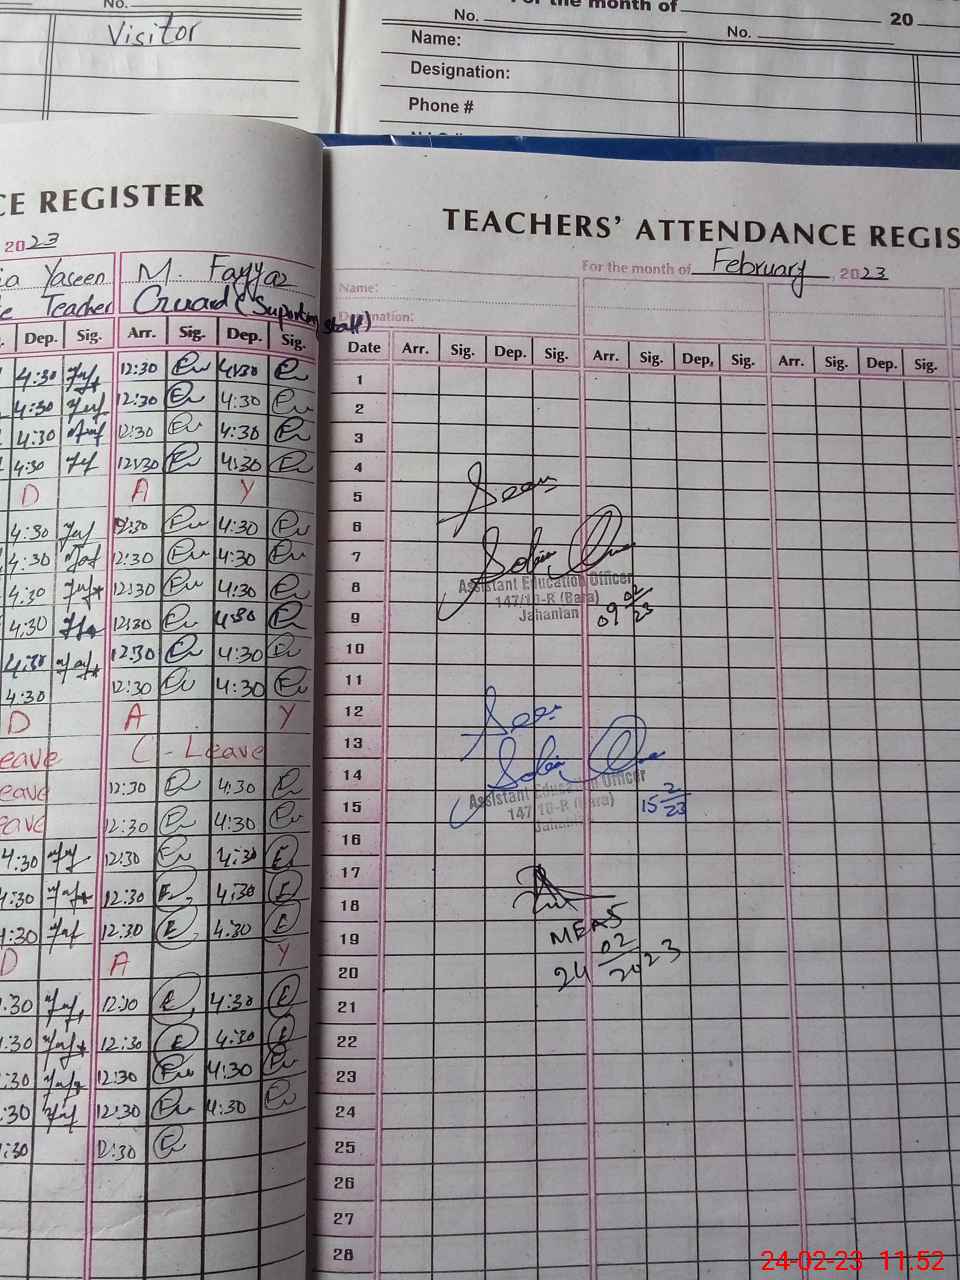 No.
Visitor
For the month of 20
No.
No.
Name:
Designation:
Phone #
CE REGISTER
2023
ia Yaseen M. Fayyaz
Teacher Guard (Suporting staff)
Dep. Sig. Arr. Sig. Dep. Sig.
4:30 12:30 4:30
4:30 12:30 4:30
4:30 12:30 4:30
4:30 12:30 4:30
D A Y
4:30 12:30 4:30
4:30 12:30 4:30
4:30 12:30 4:30
4:30 12:30 4:30
4:30 12:30 4:30
4:30 12:30 4:30
D A Y
eave C - Leave
eave 12:30 4:30
eave 12:30 4:30
4:30 12:30 4:30
4:30 12:30 4:30
4:30 12:30 4:30
D A Y
:30 12:30 4:30
:30 12:30 4:30
:30 12:30 4:30
:30 12:30 4:30
:30 12:30
TEACHERS' ATTENDANCE REGIS
For the month of February, 2023
Name:
Designation:
Date Arr. Sig. Dep. Sig. Arr. Sig. Dep, Sig. Arr. Sig. Dep. Sig.
1
2
3
4
5
6
7
8
9
10
11
12
13
14
15
16
17
18
19
20
21
22
23
24
25
26
27
28
Seen
Assistant Education Officer
147/10-R (Bara)
Jahanian
09 02/23
Seen
Assistant Education Officer
147/10-R (Bara)
Jahanian
15 2/23
MEAS
24 02/2023
24-02-23 11.52